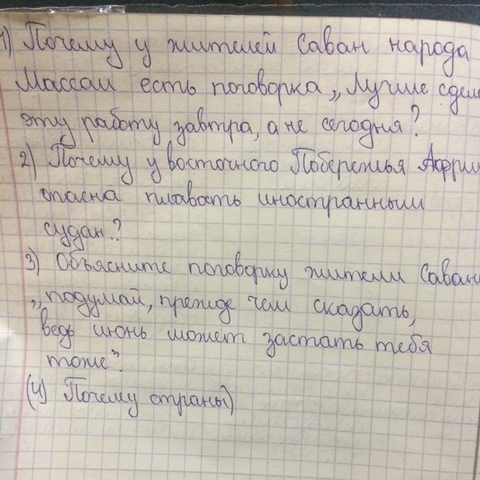 1) Почему у жителей Саван народа
Массаи есть поговорка „Лучше сдел
эту работу завтра, а не сегодня?
2) Почему у восточного Побережья Афри
опасна плавать иностранным
судан?
3) Объясните поговорку жители Саван
„подумай, прежде чем сказать,
ведь июнь может застать тебя
тоже".
(4) Почему страны)